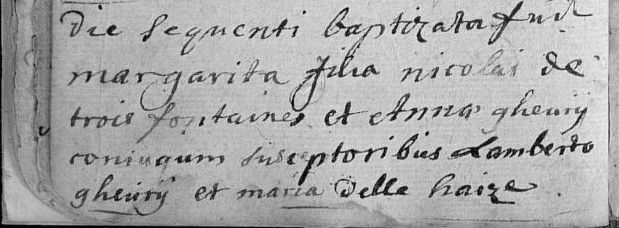 die sequenti baptizata fuit
margarita filia nicolai de
trois fontaines et Anna gheury
coniugum susceptoribus Lamberto
gheury et maria delle haize